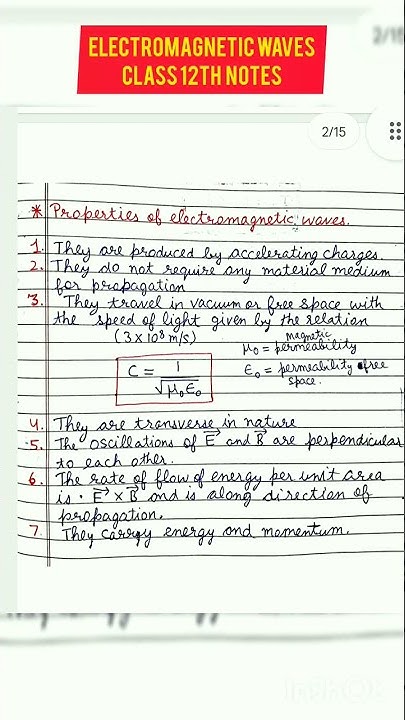 ELECTROMAGNETIC WAVES
CLASS 12TH NOTES
2/15
2/15
* Properties of electromagnetic waves.
1. They are produced by accelerating charges.
2. They do not require any material medium
for propagation
3. They travel in vacuum or free space with
the speed of light given by the relation
(3 x 10⁸ m/s)
C = 1/√μ₀ε₀
μ₀ = magnetic permeability
ε₀ = permeability of free
space.
4. They are transverse in nature
5. The oscillations of E⃗ and B⃗ are perpendicular
to each other.
6. The rate of flow of energy per unit area
is · E⃗ x B⃗ and is along direction of
propagation.
7 They carry energy and momentum.